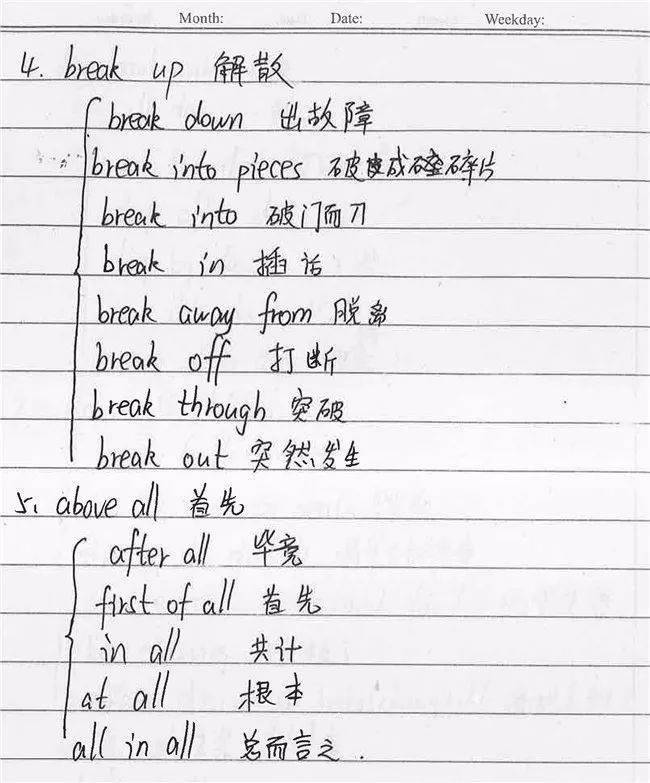 Month: Date: Weekday:
4. break up 解散
break down 出故障
break into pieces 破成碎片
break into 破门而刀
break in 插话
break away from 脱离
break off 打断
break through 突破
break out 突然发生
5. above all 首先
after all 毕竟
first of all 首先
in all 共计
at all 根本
all in all 总而言之.